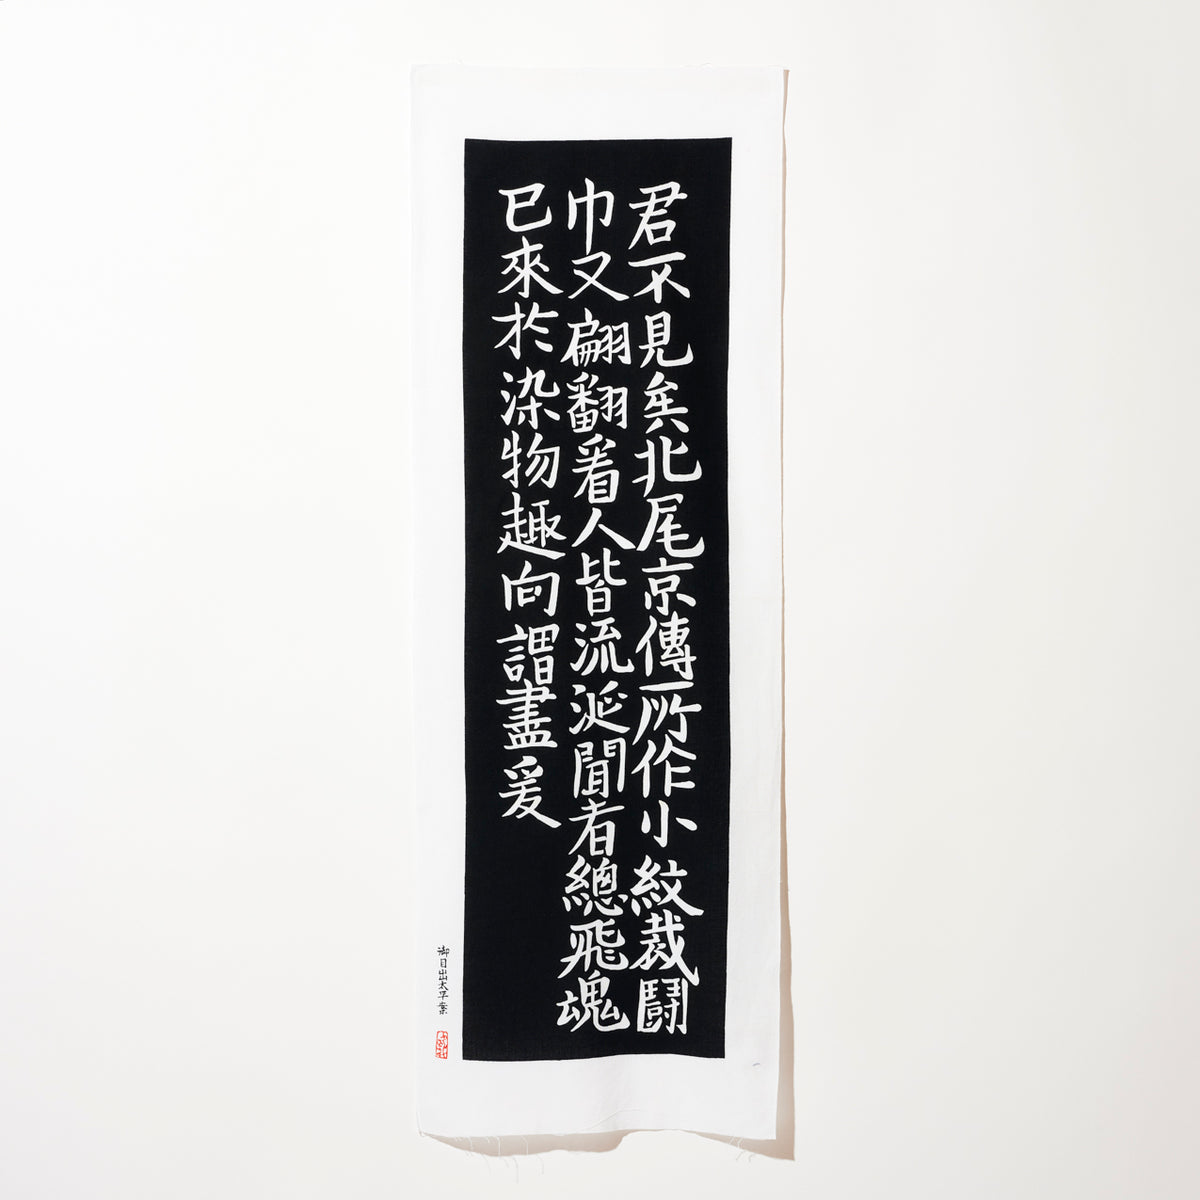 君不見矣北尾京傳所作小紋裁鬪
巾又翩翻看人皆流涎聞者總飛魂
已來於染物趣向謂盡爰
御目出太平業